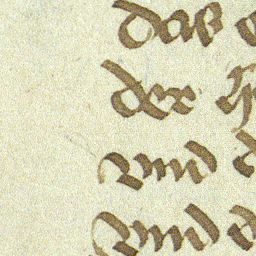 das
der
vnd
vnd